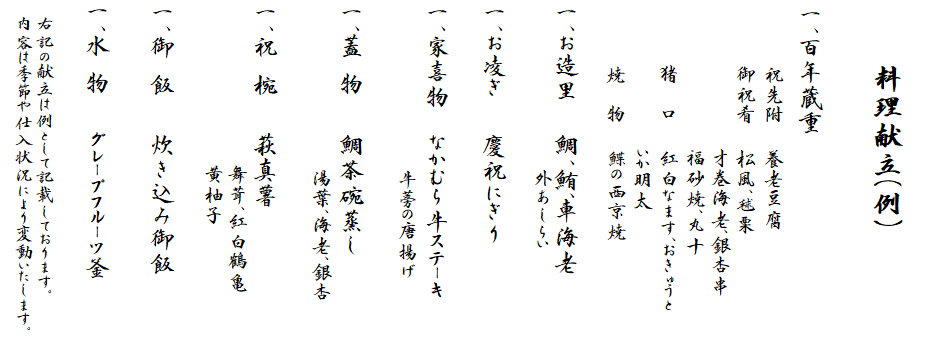 料理献立(例)
一、百年蔵重
祝先附 養老豆腐
御祝肴 松風、毬栗
才巻海老、銀杏串
福砂焼、丸十
猪口 紅白なます、おきゅうと
いか明太
焼物 鰈の西京焼
一、お造里 鯛、鮪、車海老
外あしらい
一、お凌ぎ 慶祝にぎり
一、家喜物 なかむら牛ステーキ
牛蒡の唐揚げ
一、蓋物 鯛茶碗蒸し
湯葉、海老、銀杏
一、祝椀 萩真薯
舞茸、紅白鶴亀
黄柚子
一、御飯 炊き込み御飯
一、水物 グレープフルーツ釜
右記の献立は例として記載しております。
内容は季節や仕入状況により変動いたします。